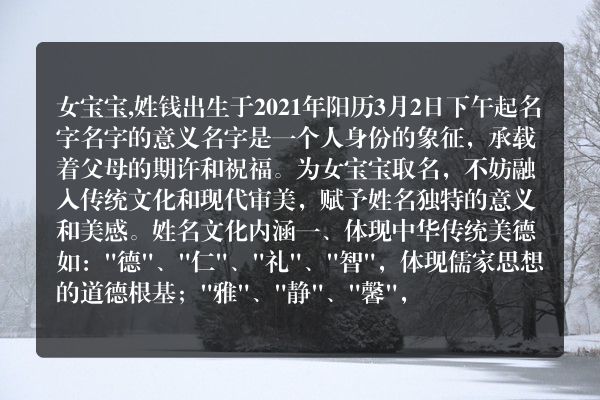 女宝宝,姓钱出生于2021年阳历3月2日下午起名
字名字的意义名字是一个人身份的象征，承载
着父母的期许和祝福。为女宝宝取名，不妨融
入传统文化和现代审美，赋予姓名独特的意义
和美感。姓名文化内涵一、体现中华传统美德
如："德"、"仁"、"礼"、"智"，体现儒家思想
的道德根基；"雅"、"静"、"馨"，